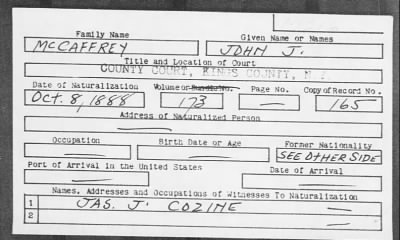 Family Name Given Name or Names
McCAFFREY JOHN J.
Title and Location of Court
COUNTY COURT, KINGS COUNTY, N.Y.
Date of Naturalization Volume or Bundle No. Page No. Copy of Record No.
Oct. 8, 1888 173 — 165
Address of Naturalized Person
—
Occupation Birth Date or Age Former Nationality
— — SEE OTHER SIDE
Port of Arrival in the United States Date of Arrival
— —
Names, Addresses and Occupations of Witnesses To Naturalization
1 JAS. J. COZINE —
2 —